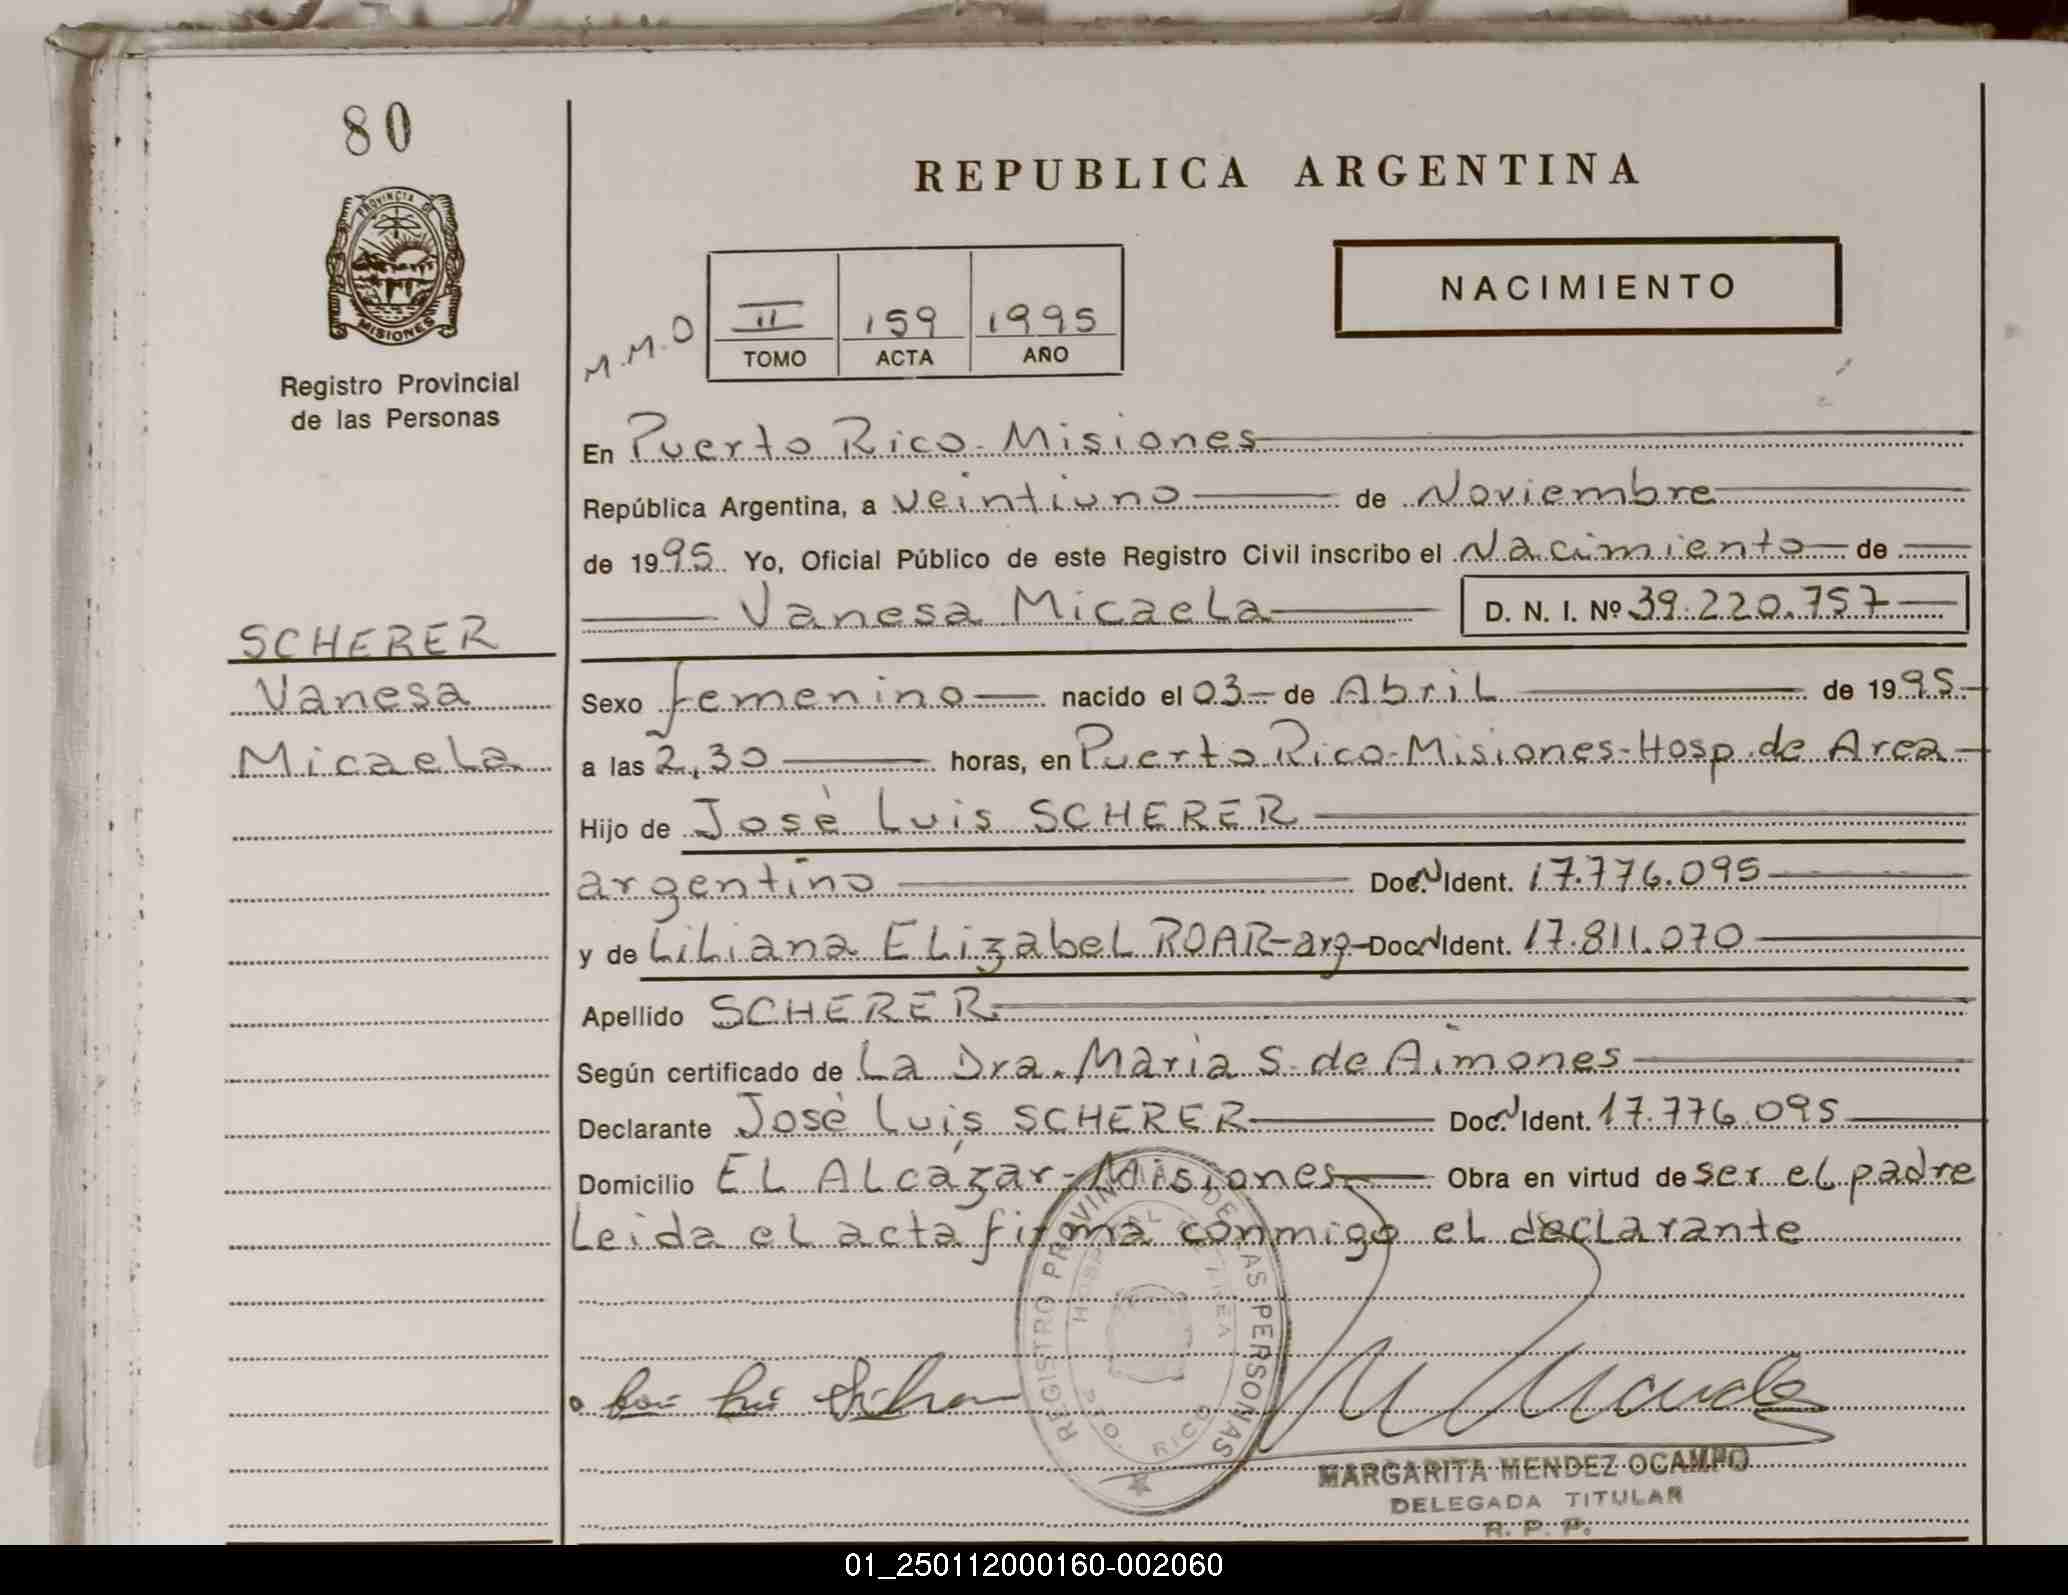 80
PROVINCIA DE
MISIONES
Registro Provincial
de las Personas
SCHERER
Vanesa
Micaela
REPUBLICA ARGENTINA
NACIMIENTO
M.M.O
II 159 1995
TOMO ACTA AÑO
En Puerto Rico - Misiones
República Argentina, a veintiuno de Noviembre
de 1995 Yo, Oficial Público de este Registro Civil inscribo el Nacimiento de
Vanesa Micaela D. N. I. Nº 39.220.757
Sexo femenino nacido el 03 de Abril de 1995
a las 2,30 horas, en Puerto Rico-Misiones-Hosp. de Area
Hijo de José Luis SCHERER
argentino Doc. Ident. 17.776.095
y de Liliana Elizabel ROAR-arg-Doc. Ident. 17.811.070
Apellido SCHERER
Según certificado de La Dra. Maria S. de Aimones
Declarante José Luis SCHERER Doc. Ident. 17.776.095
Domicilio El Alcázar-Misiones Obra en virtud de ser el padre
Leida el acta firma conmigo el declarante
REGISTRO PROVINCIAL DE LAS PERSONAS
HOSPITAL DE AREA
PTO. RICO
MARGARITA MENDEZ OCAMPO
DELEGADA TITULAR
R. P. P.
01_250112000160-002060